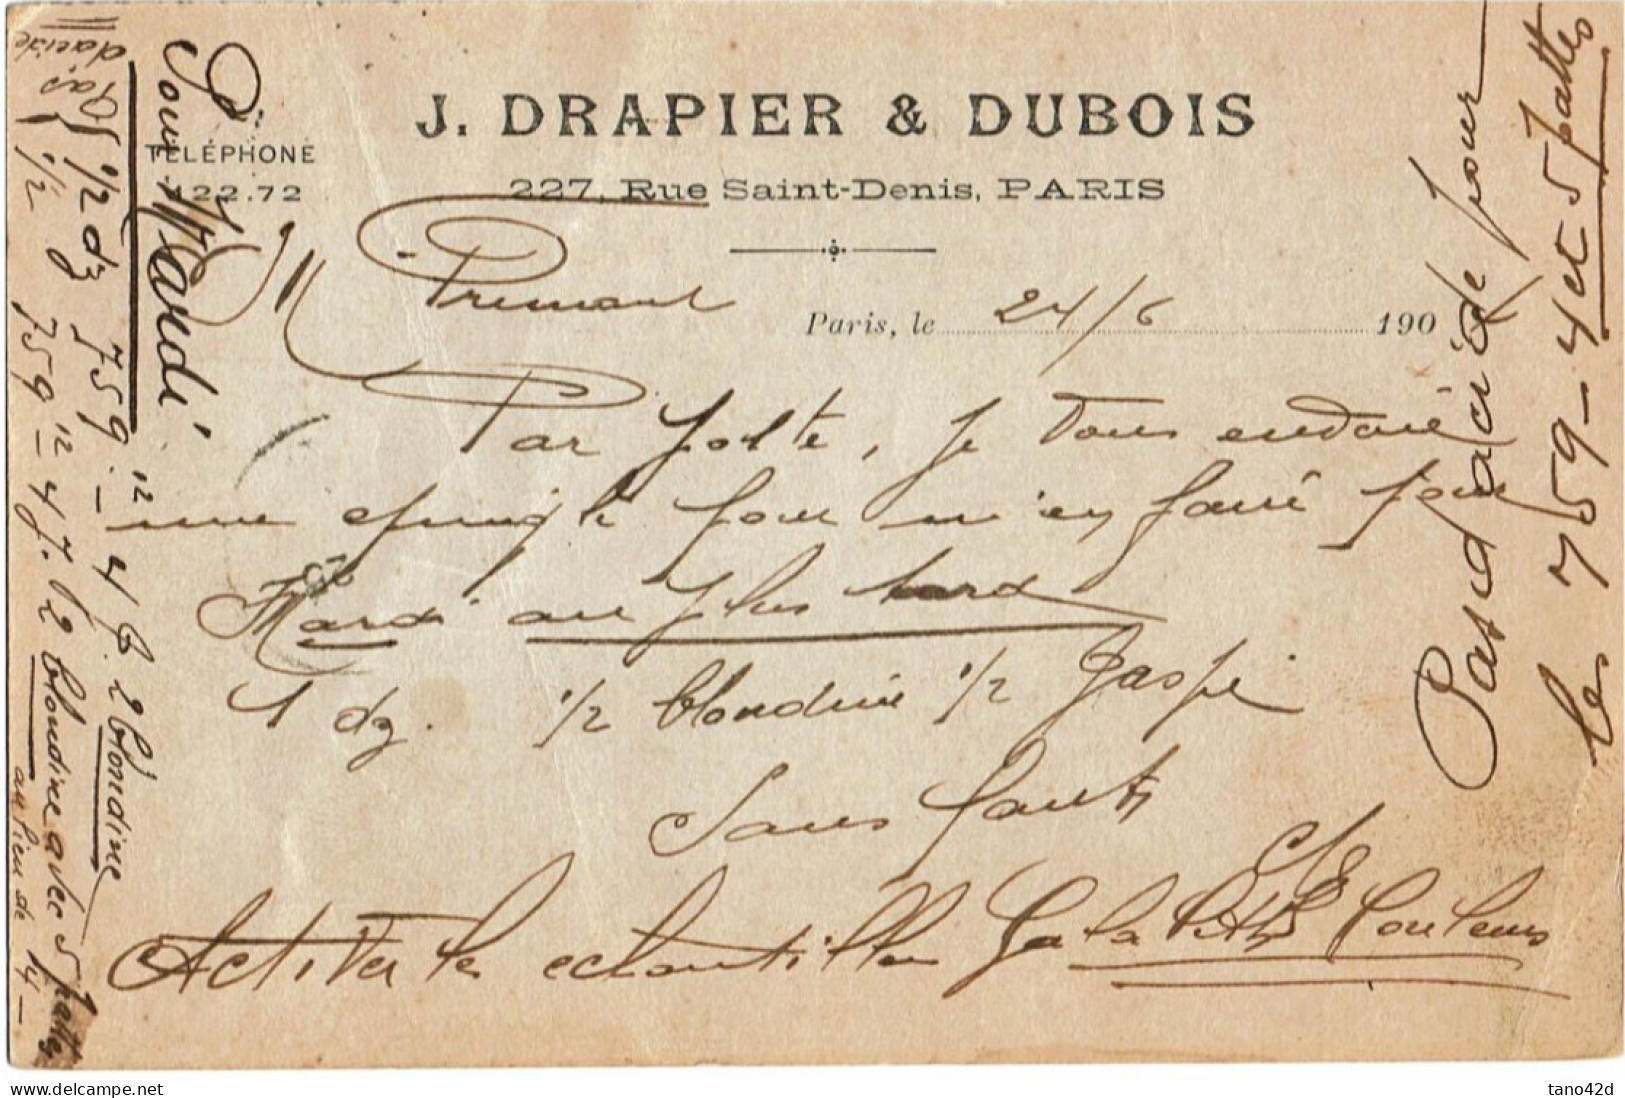 J. DRAPIER & DUBOIS
TÉLÉPHONE
122.72
227, Rue Saint-Denis, PARIS
Pour Mardi
Paris, le 24/6 190
Par poste, je vous envoie
une epingle pour m'en faire pour
Mardi au plus tard
1 dz. 1/2 blondine 1/2 Jaspé
Sans faute
Activer les echantillons Galalithe Couleurs
Pas d'acide pour
le 759-4 et 5 pattes
Pas d'acide
1/2 dz 759-12-4 f. 2 blondine
1/2 g 759-12-4 f. 1/2 blondine avec 5 pattes
au lieu de 4-
www.delcampe.net
tano42d